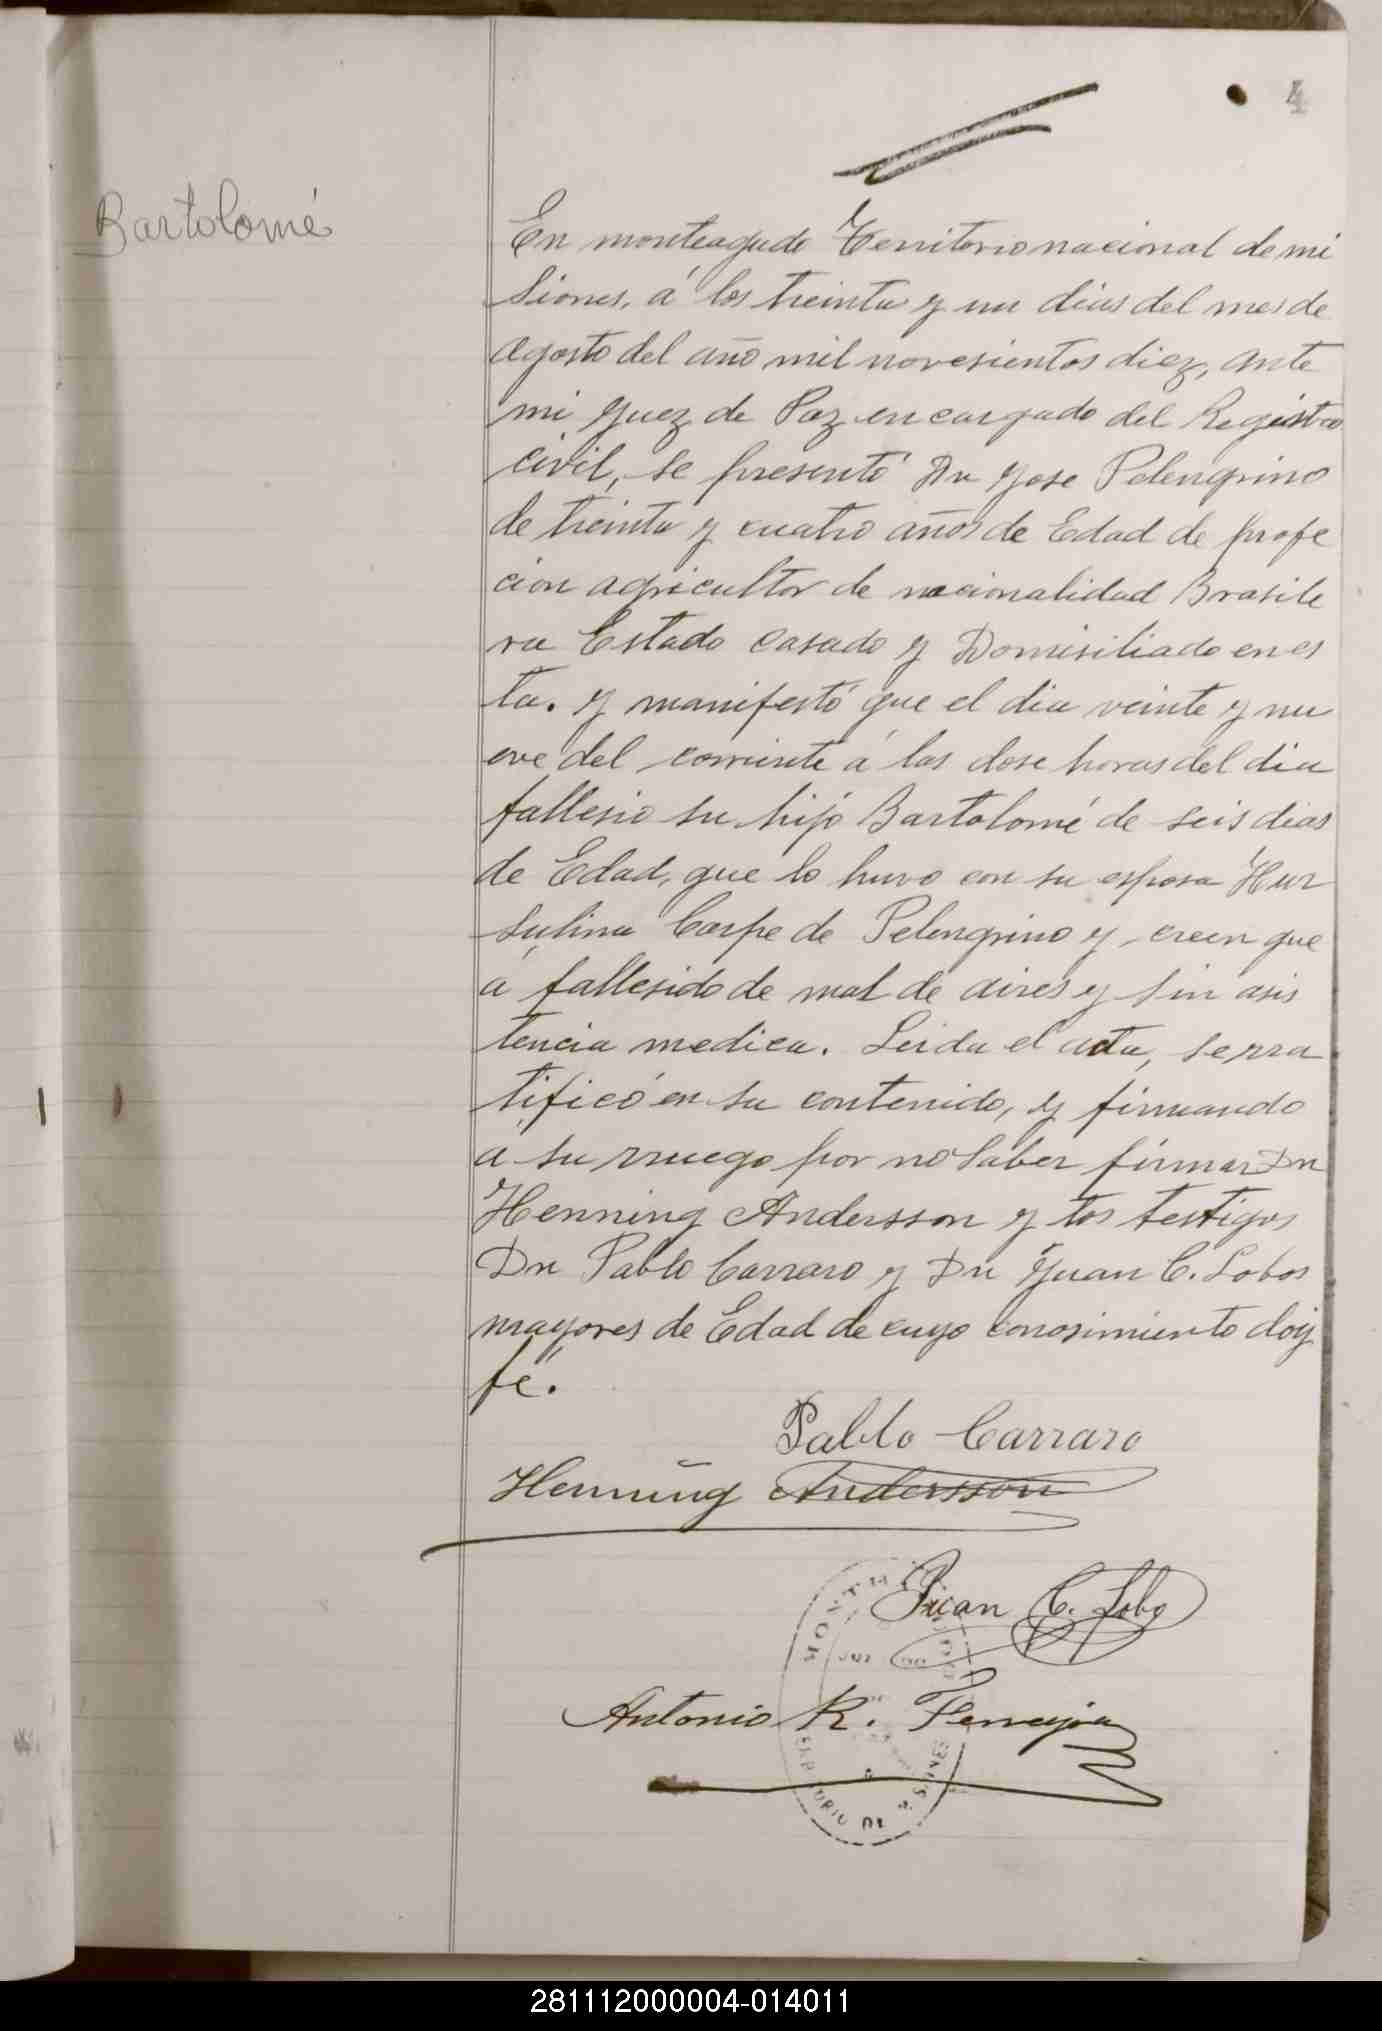 4
Bartolomé
En monteagudo Territorio nacional de mi
siones, á los treinta y un dias del mes de
Agosto del año mil novesientos diez, ante
mi Juez de Paz encargado del Registro
civil, se presentó Dn Jose Pelengrino
de treinta y cuatro años de Edad de profe
cion agricultor de nacionalidad Brasile
ra Estado casado y Domisiliado en es
ta. y manifestó que el dia veinte y nu
eve del corriente á las dose horas del dia
fallesio su hijo Bartolomé de seis dias
de Edad, que lo huvo con su esposa Hur
sulina Carpe de Pelengrino y creen que
á fallesido de mal de aires y sin asis
tencia medica. Leida el acta, se rra
tificó en su contenido, y firmando
a su rruego por no saber firmar Dn
Henning Andersson y los testigos
Dn Pablo Carraro y Dn Juan C. Lobos
mayores de Edad de cuyo conosimiento doy
fé.
Pablo Carraro
Henning Andersson
Juan C. Lobo
Antonio R.
281112000004-014011